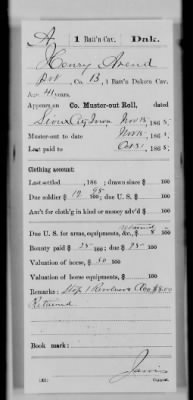 A | 1 Batt'n Cav. | Dak.
Henry Arend
Pvt, Co. B, 1 Batt'n Dakota Cav.
Age 41 years.
Appears on Co. Muster-out Roll, dated
Sioux City Iowa Nov 15, 1865.
Muster-out to date Nov 15, 1865.
Last paid to Oct 31, 1865.
Clothing account:
Last settled , 186 ; drawn since $ 100
Due soldier $ 12 95/100; due U. S. $ 100
Am't for cloth'g in kind or money adv'd $ 100
Due U. S. for arms, equipments, &c., $ 8 100
Bounty paid $ 25 100; due $ 100
Valuation of horse, $ 100
Valuation of horse equipments, $ 100
Remarks: Stop 1 Revolver $8.00
Retained
Book mark:
Jarvis
Copyist.